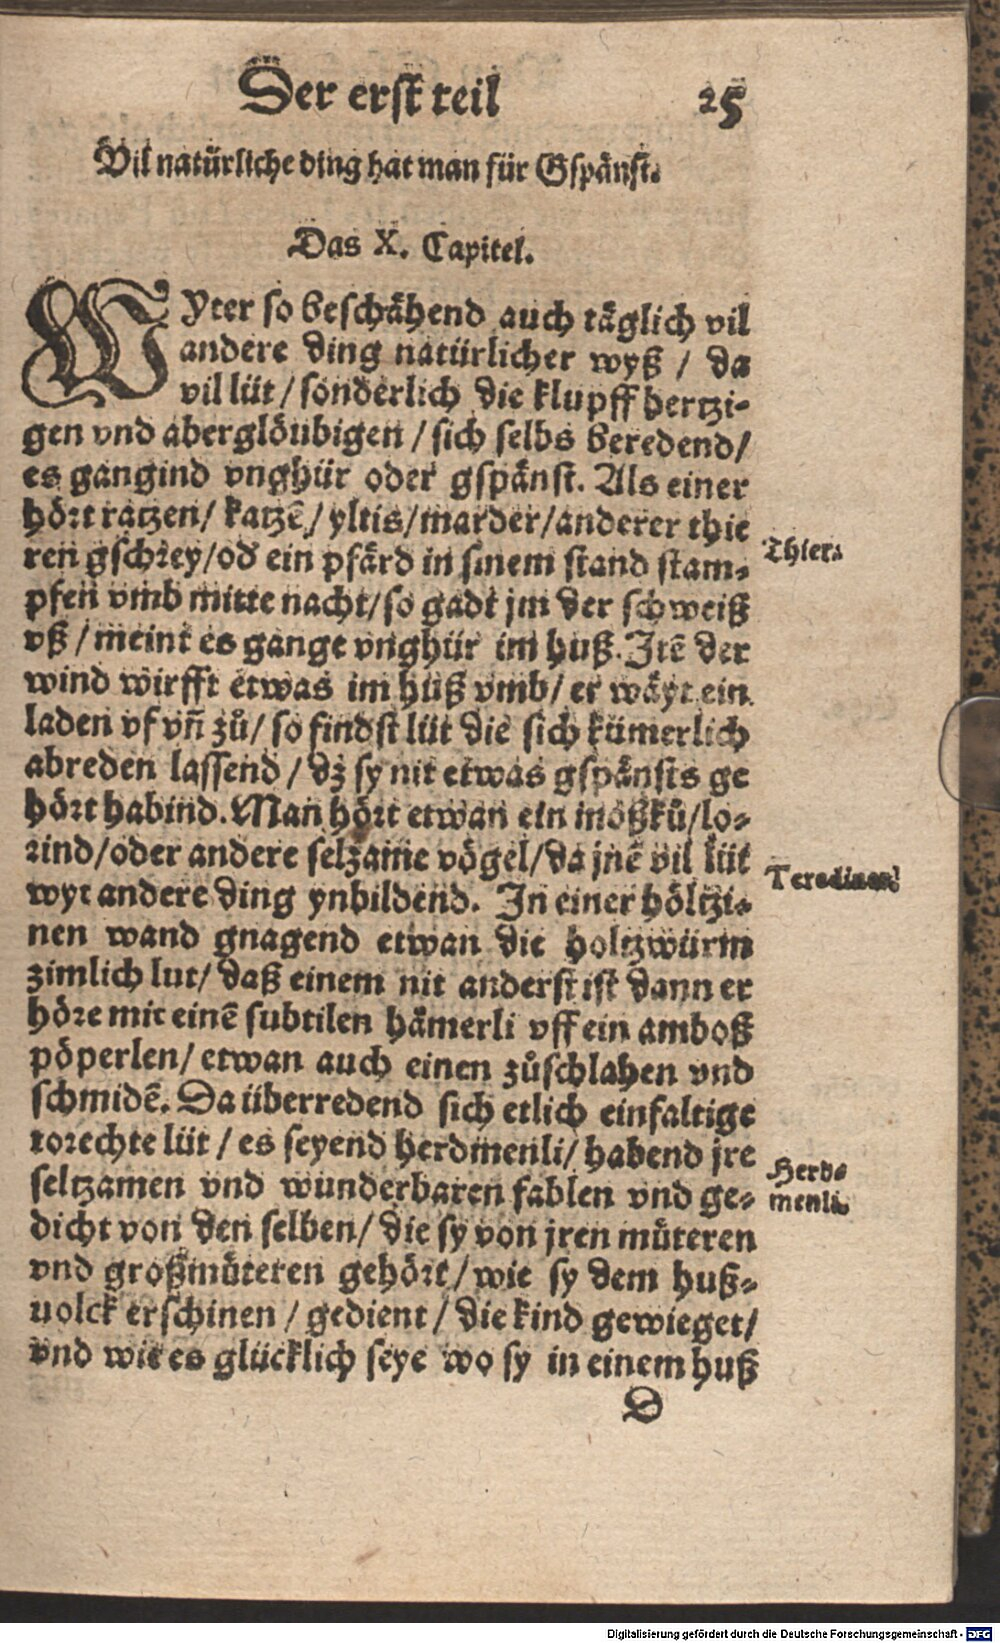 Der erst teil 25
Vil natürliche ding hat man für Gspänst.
Das X. Capitel.
WYter so beschähend auch täglich vil
andere ding natürlicher wyß / da
vil lüt / sonderlich die klupff hertzi-
gen vnd aberglöubigen / sich selbs beredend/
es gangind vnghür oder gspänst. Als einer
hört ratzen/ katzē/ yltis/marder/anderer thie
ren gschrey/od ein pfärd in sinem stand stam-
pfen vmb mitte nacht/so gadt jm der schweiß
vß / meint es gange vnghür im huß. Itē der
wind wirfft etwas im huß vmb/ er wäyt ein
laden vf vñ zů/ so findst lüt die sich kümerlich
abreden lassend / dz sy nit etwas gspänsts ge
hört habind. Man hört etwan ein moßků/lo-
rind/oder andere selzame vögel/da jnē vil lüt
wyt andere ding ynbildend. In einer höltzi-
nen wand gnagend etwan die holtzwürm
zimlich lut/ daß einem nit anderst ist dann er
höre mit einē subtilen hämerli vff ein amboß
pöperlen/ etwan auch einen zůschlahen vnd
schmidē. Da überredend sich etlich einfaltige
torechte lüt / es seyend herdmenli/ habend jre
seltzamen vnd wunderbaren fablen vnd ge-
dicht von den selben/ die sy von jren můteren
vnd großmůteren gehört/ wie sy dem huß-
uolck erschinen / gedient / die kind gewieget/
vnd wie es glücklich seye wo sy in einem huß
D
Thier.
Teredines.
Herd-
menli.
Digitalisierung gefördert durch die Deutsche Forschungsgemeinschaft - DFG